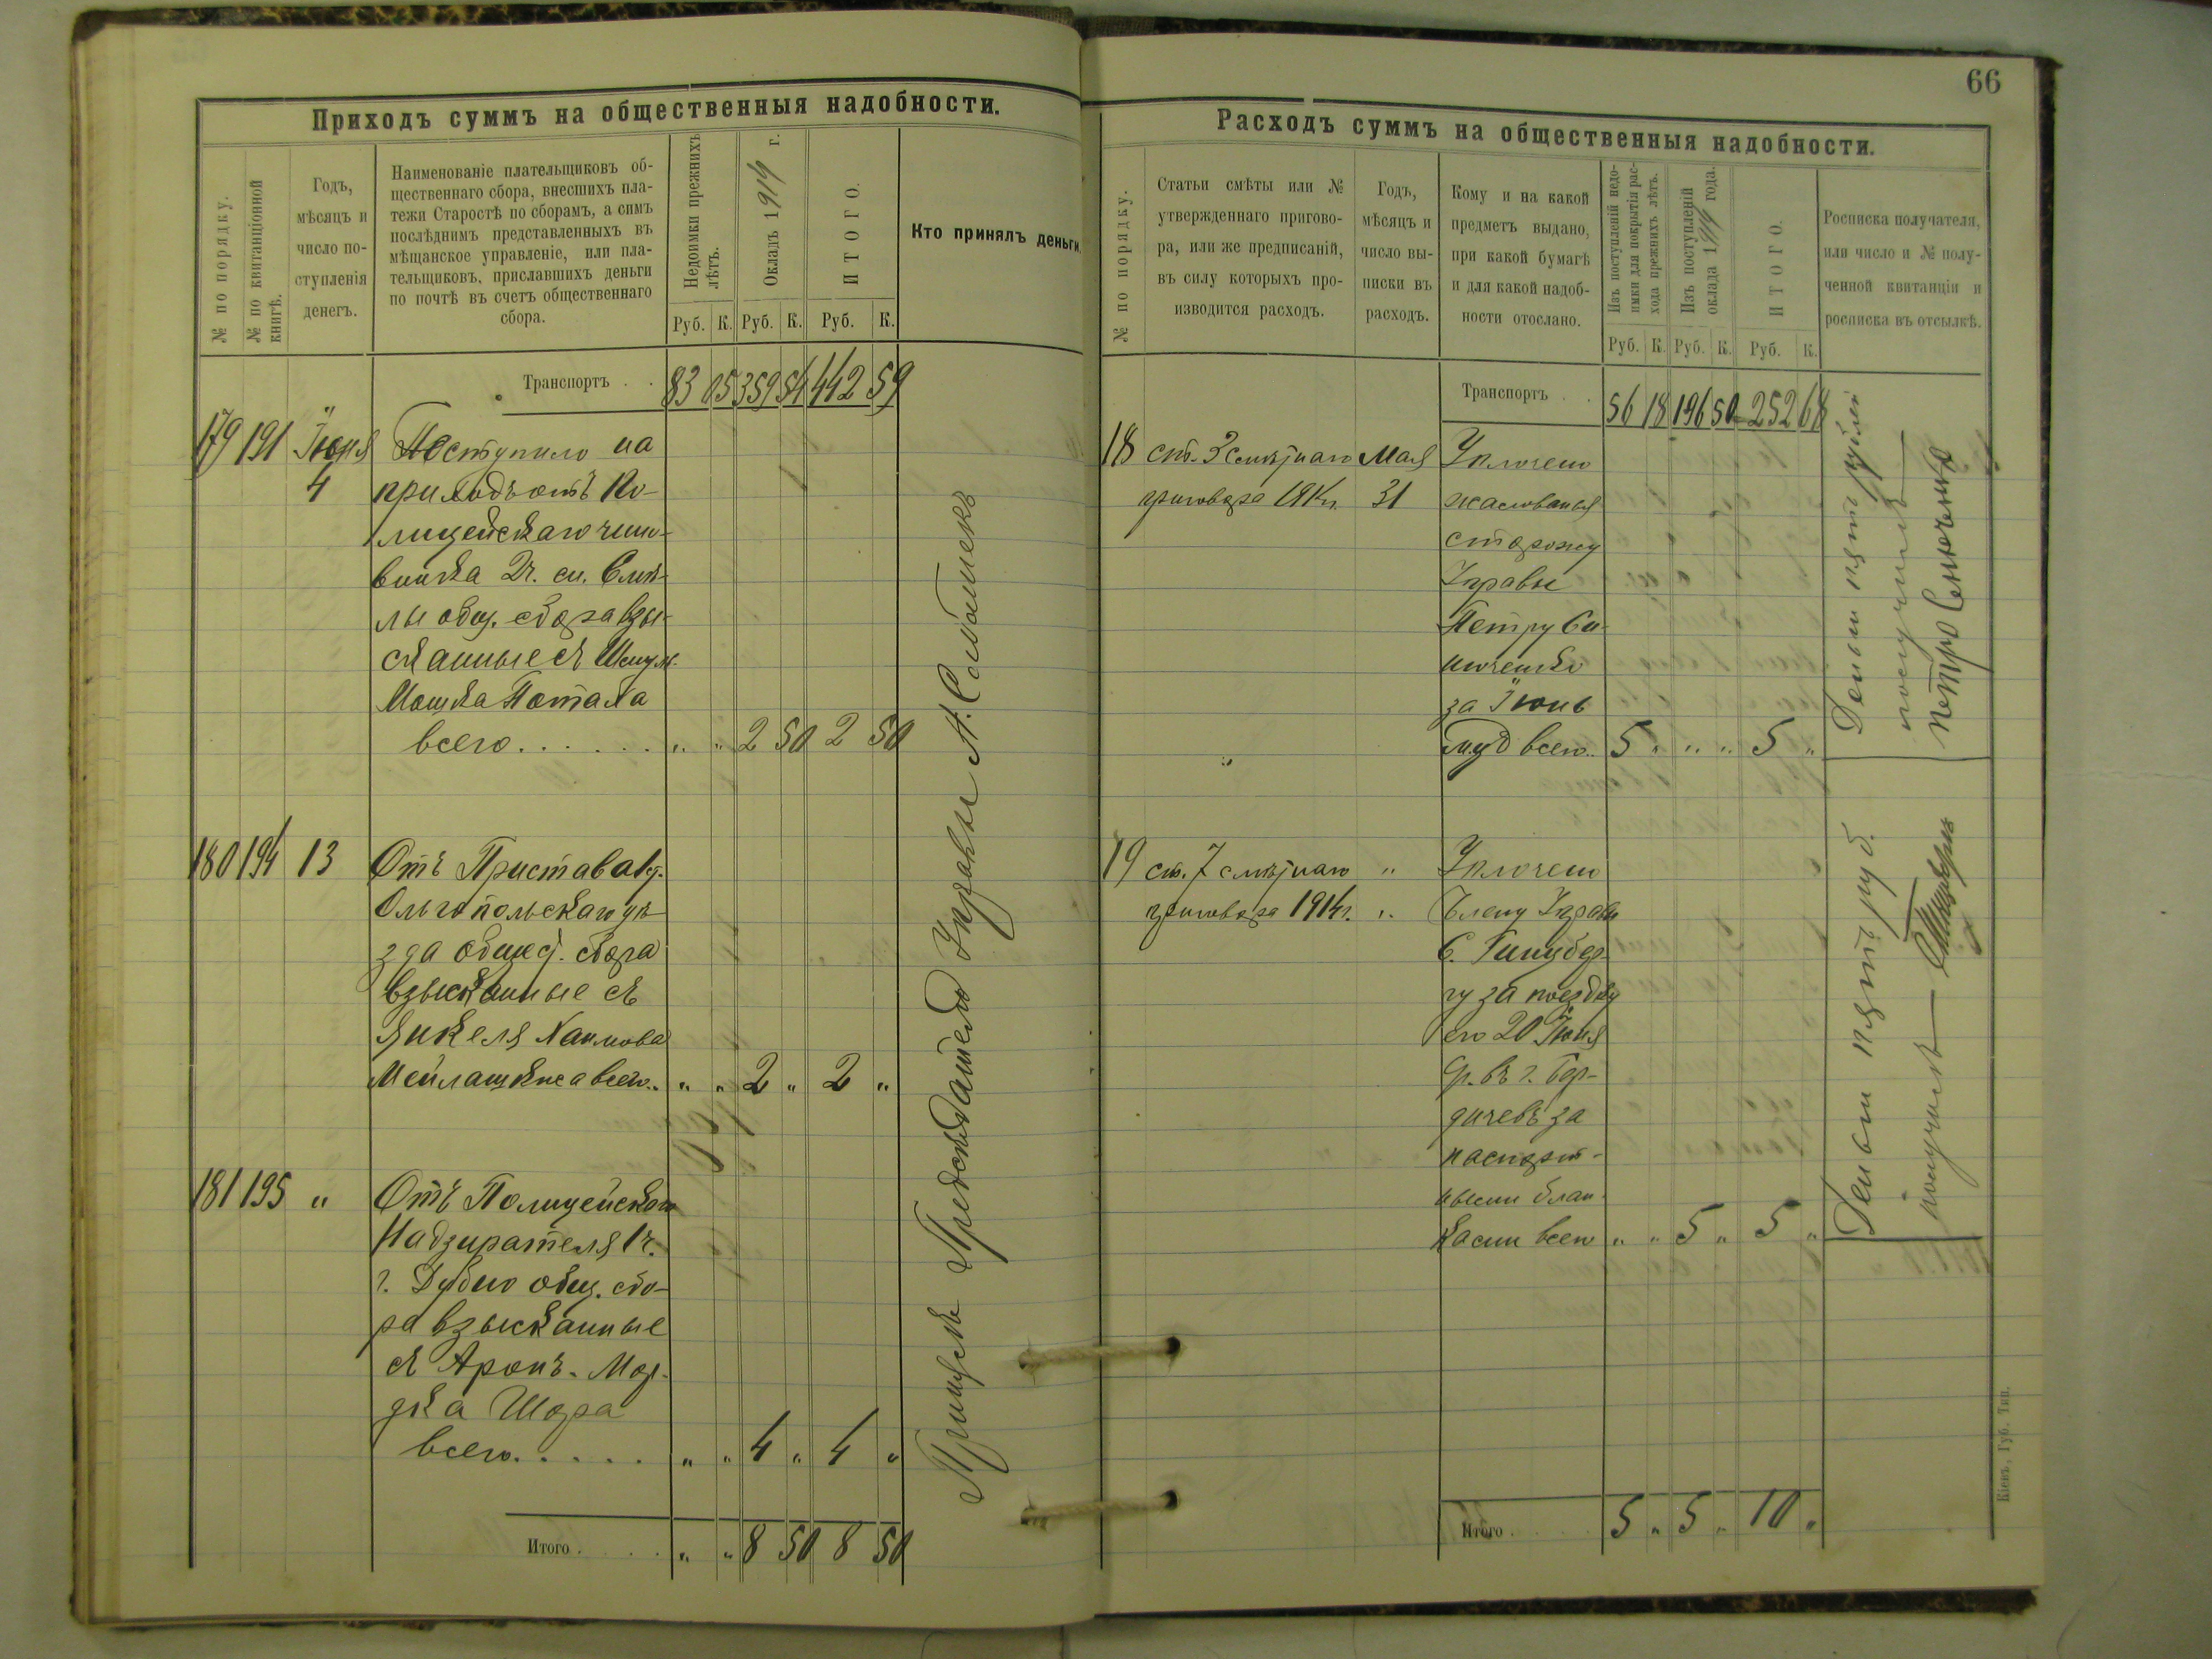 Приходъ суммъ на общественныя надобности.
№ по порядку.
№ по квитанціонной книгѣ.
Годъ,
мѣсяцъ и
число по-
ступленія
денегъ.
Наименованіе плательщиковъ об-
щественнаго сбора, внесшихъ пла-
тежи Старостѣ по сборамъ, а симъ
послѣднимъ представленныхъ въ
мѣщанское управленіе, или пла-
тельщиковъ, приславшихъ деньги
по почтѣ въ счетъ общественнаго
сбора.
Недоимки прежнихъ
лѣтъ.
Окладъ 1914 г.
ИТОГО.
Кто принялъ деньги.
Руб. К. Руб. К. Руб. К.
Транспортъ . . 83 05 359 54 442 59
179 191 Іюня Поступило на
4 приходъ отъ По-
лицейскаго чино-
вника 2 ч. м. Смѣ-
лы общ. сбора взы-
сканные съ Шмуль
Мошка Потаха
всего . . . . . . " " 2 50 2 50
180 194 13 Отъ Пристава 1 у.
Ольгопольскаго уѣ-
зда общест. сбора
взысканные съ
Янкеля Хаимова
всего.. " " 2 " 2 "
181 195 " Отъ Полицейскаго
Надзирателя 1 ч.
г. Дубно общ. сбо-
ра взысканные
съ Аронъ-Мор-
дка Шора
всего. . . . . " " 4 " 4 "
Итого . . . . " " 8 50 8 50
Предсѣдатель Управы
66
Расходъ суммъ на общественныя надобности.
№ по порядку.
Статьи смѣты или №
утвержденнаго пригово-
ра, или же предписаній,
въ силу которыхъ про-
изводится расходъ.
Годъ,
мѣсяцъ и
число вы-
писки въ
расходъ.
Кому и на какой
предметъ выдано,
при какой бумагѣ
и для какой надоб-
ности отослано.
Изъ поступленій недо-
имки для покрытія рас-
хода прежнихъ лѣтъ.
Изъ поступленій
оклада 1914 года.
ИТОГО.
Росписка получателя,
или число и № полу-
ченной квитанціи и
росписка въ отсылкѣ.
Руб. К. Руб. К. Руб. К.
Транспортъ . . 56 18 196 50 252 68
18 ст. 3 смѣтнаго Мая Уплочено
приговора 31 жалованья
сторожу
Управы
Петру Си-
ниченко
за Іюнь
всего.. 5 " " " 5 "
19 ст. 7 смѣтнаго " Уплочено
приговора 1914 г. " Члену Управы
С. Гинцбер-
гу за поездку
его 20 Іюня
въ г. Бер-
дичевъ за
паспорт-
ными блан-
ками всего " " 5 " 5 "
Итого . . . . 5 " 5 " 10 "
Деньги пять рублей
получилъ
Деньги пять руб.
получилъ
Кіевъ, Губ. Тип.